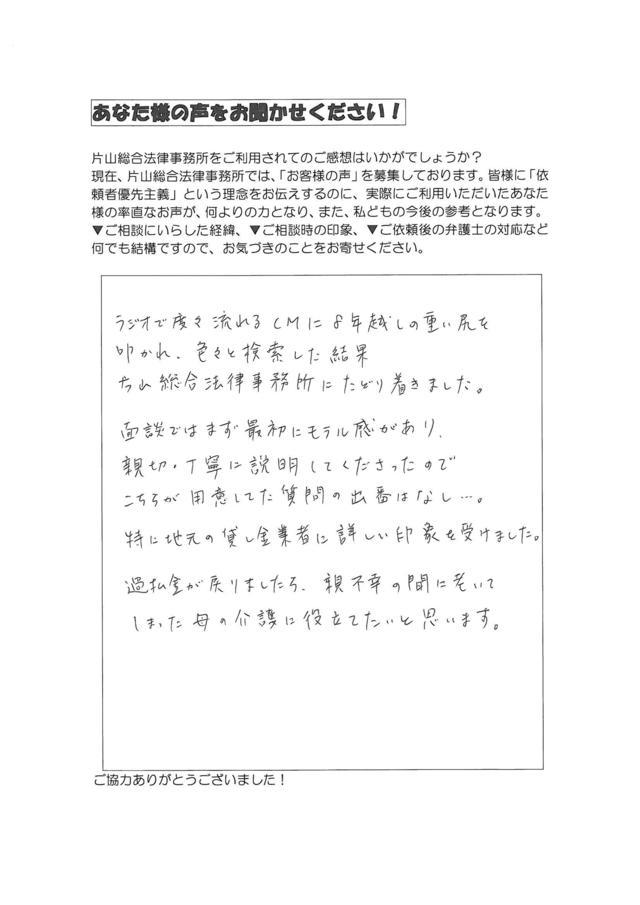 あなた様の声をお聞かせください!
片山総合法律事務所をご利用されてのご感想はいかがでしょうか?
現在、片山総合法律事務所では、「お客様の声」を募集しております。皆様に「依
頼者優先主義」という理念をお伝えするのに、実際にご利用いただいたあなた
様の率直なお声が、何よりの力となり、また、私どもの今後の参考となります。
▼ご相談にいらした経緯、▼ご相談時の印象、▼ご依頼後の弁護士の対応など
何でも結構ですので、お気づきのことをお寄せください。
ラジオで度々流れるCMに8年越しの重い尻を
叩かれ、色々と検索した結果
片山総合法律事務所にたどり着きました。
面談ではまず最初にモラル感があり、
親切・丁寧に説明してくださったので
こちらが用意してた質問の出番はなし…。
特に地元の貸し金業者に詳しい印象を受けました。
過払金が戻りましたら、親不幸の間に老いて
しまった母の介護に役立てたいと思います。
ご協力ありがとうございました!